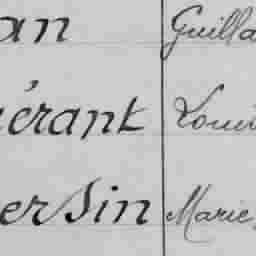 an Guilla
érant Loui
ersin Marie